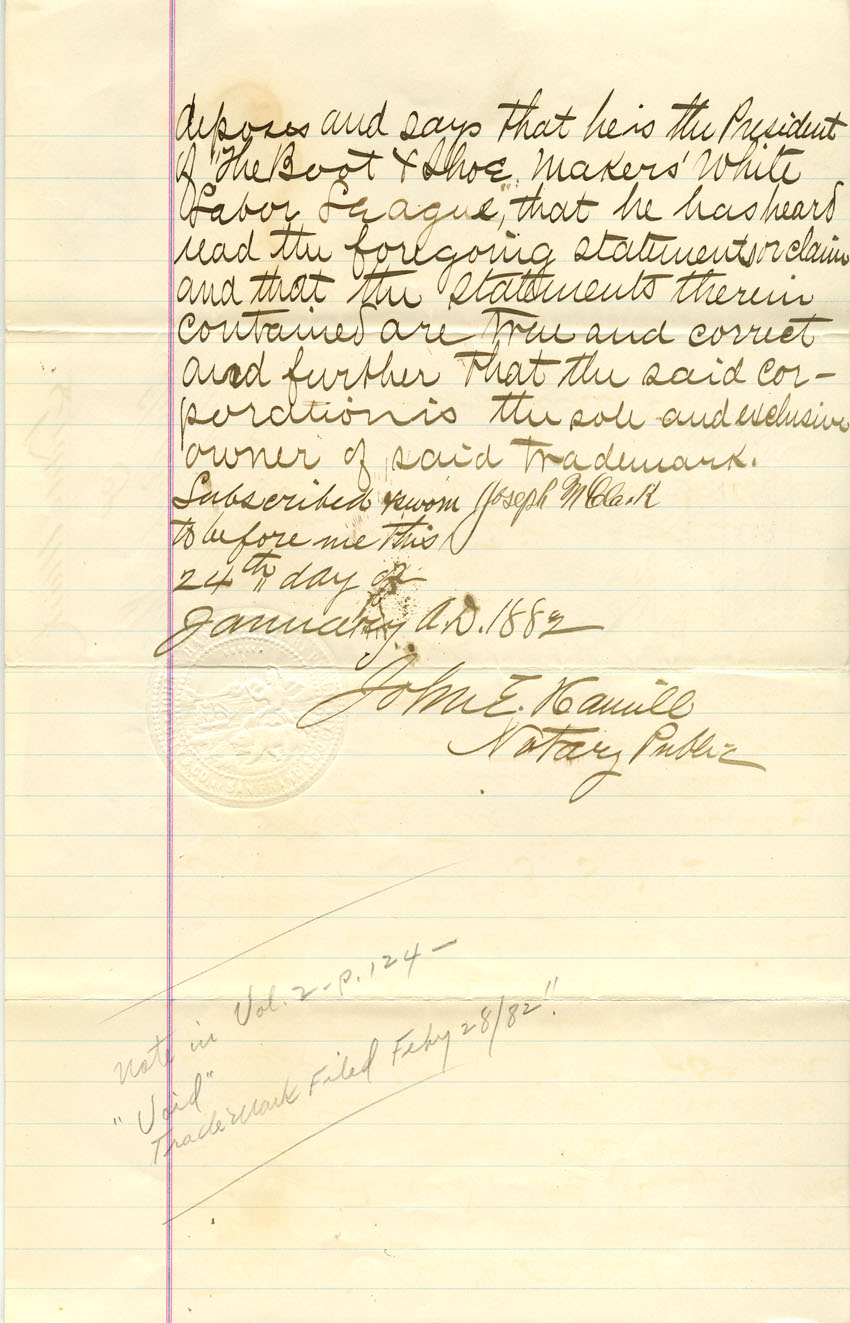 deposes and says that he is the President
of "The Boot & Shoe Makers' White
Labor League", that he has heard
read the foregoing statements or claim
and that the statements therein
contained are true and correct
and further that the said cor-
poration is the sole and exclusive
owner of said trademark.
Subscribed sworn Joseph M Clark
to before me this
24th day of
January A.D. 1882
John E. Hamill
Notary Public
Note in Vol. 2 - p. 124 -
"Void"
TradeMark Filed Feby 28/82"